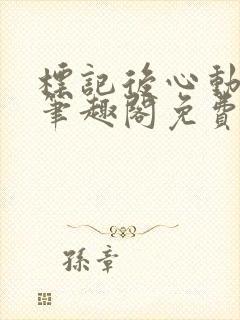 標記後心動
筆趣閣免費
孫章